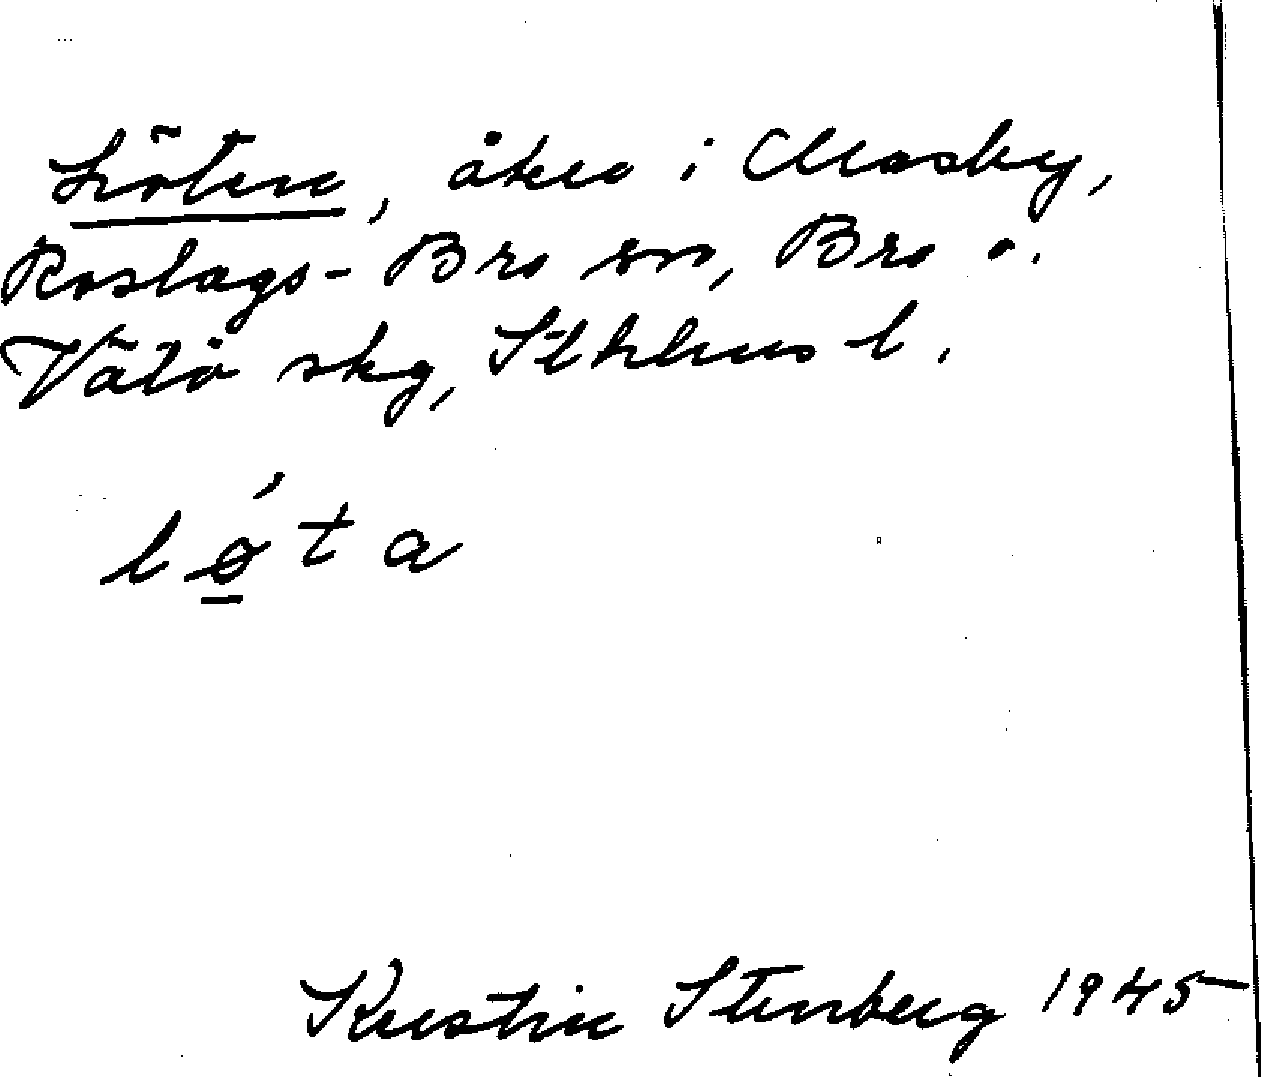 Löten, åker i Masby,
Roslags-Bro sn, Bro o.
Vätö skg, Sthlms l.
lǿ̱ta
Kerstin Stenberg 1945